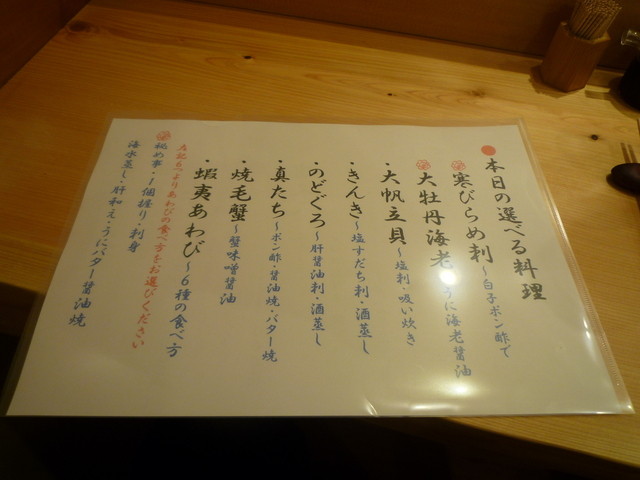 本日の選べる料理
寒びらめ刺～白子ポン酢で
大牡丹海老～うに海老醤油
・大帆立貝～塩刺・吸い炊き
・きんき～塩すだち刺・酒蒸し
・のどぐろ～肝醤油刺・酒蒸し
・真たち～ポン酢・醤油焼・バター焼
・焼毛蟹～蟹味噌醤油
・蝦夷あわび～6種の食べ方
左記6つよりあわびの食べ方をお選びください
秘め事・1個握り・刺身
海水蒸し・肝和え・うにバター醤油焼